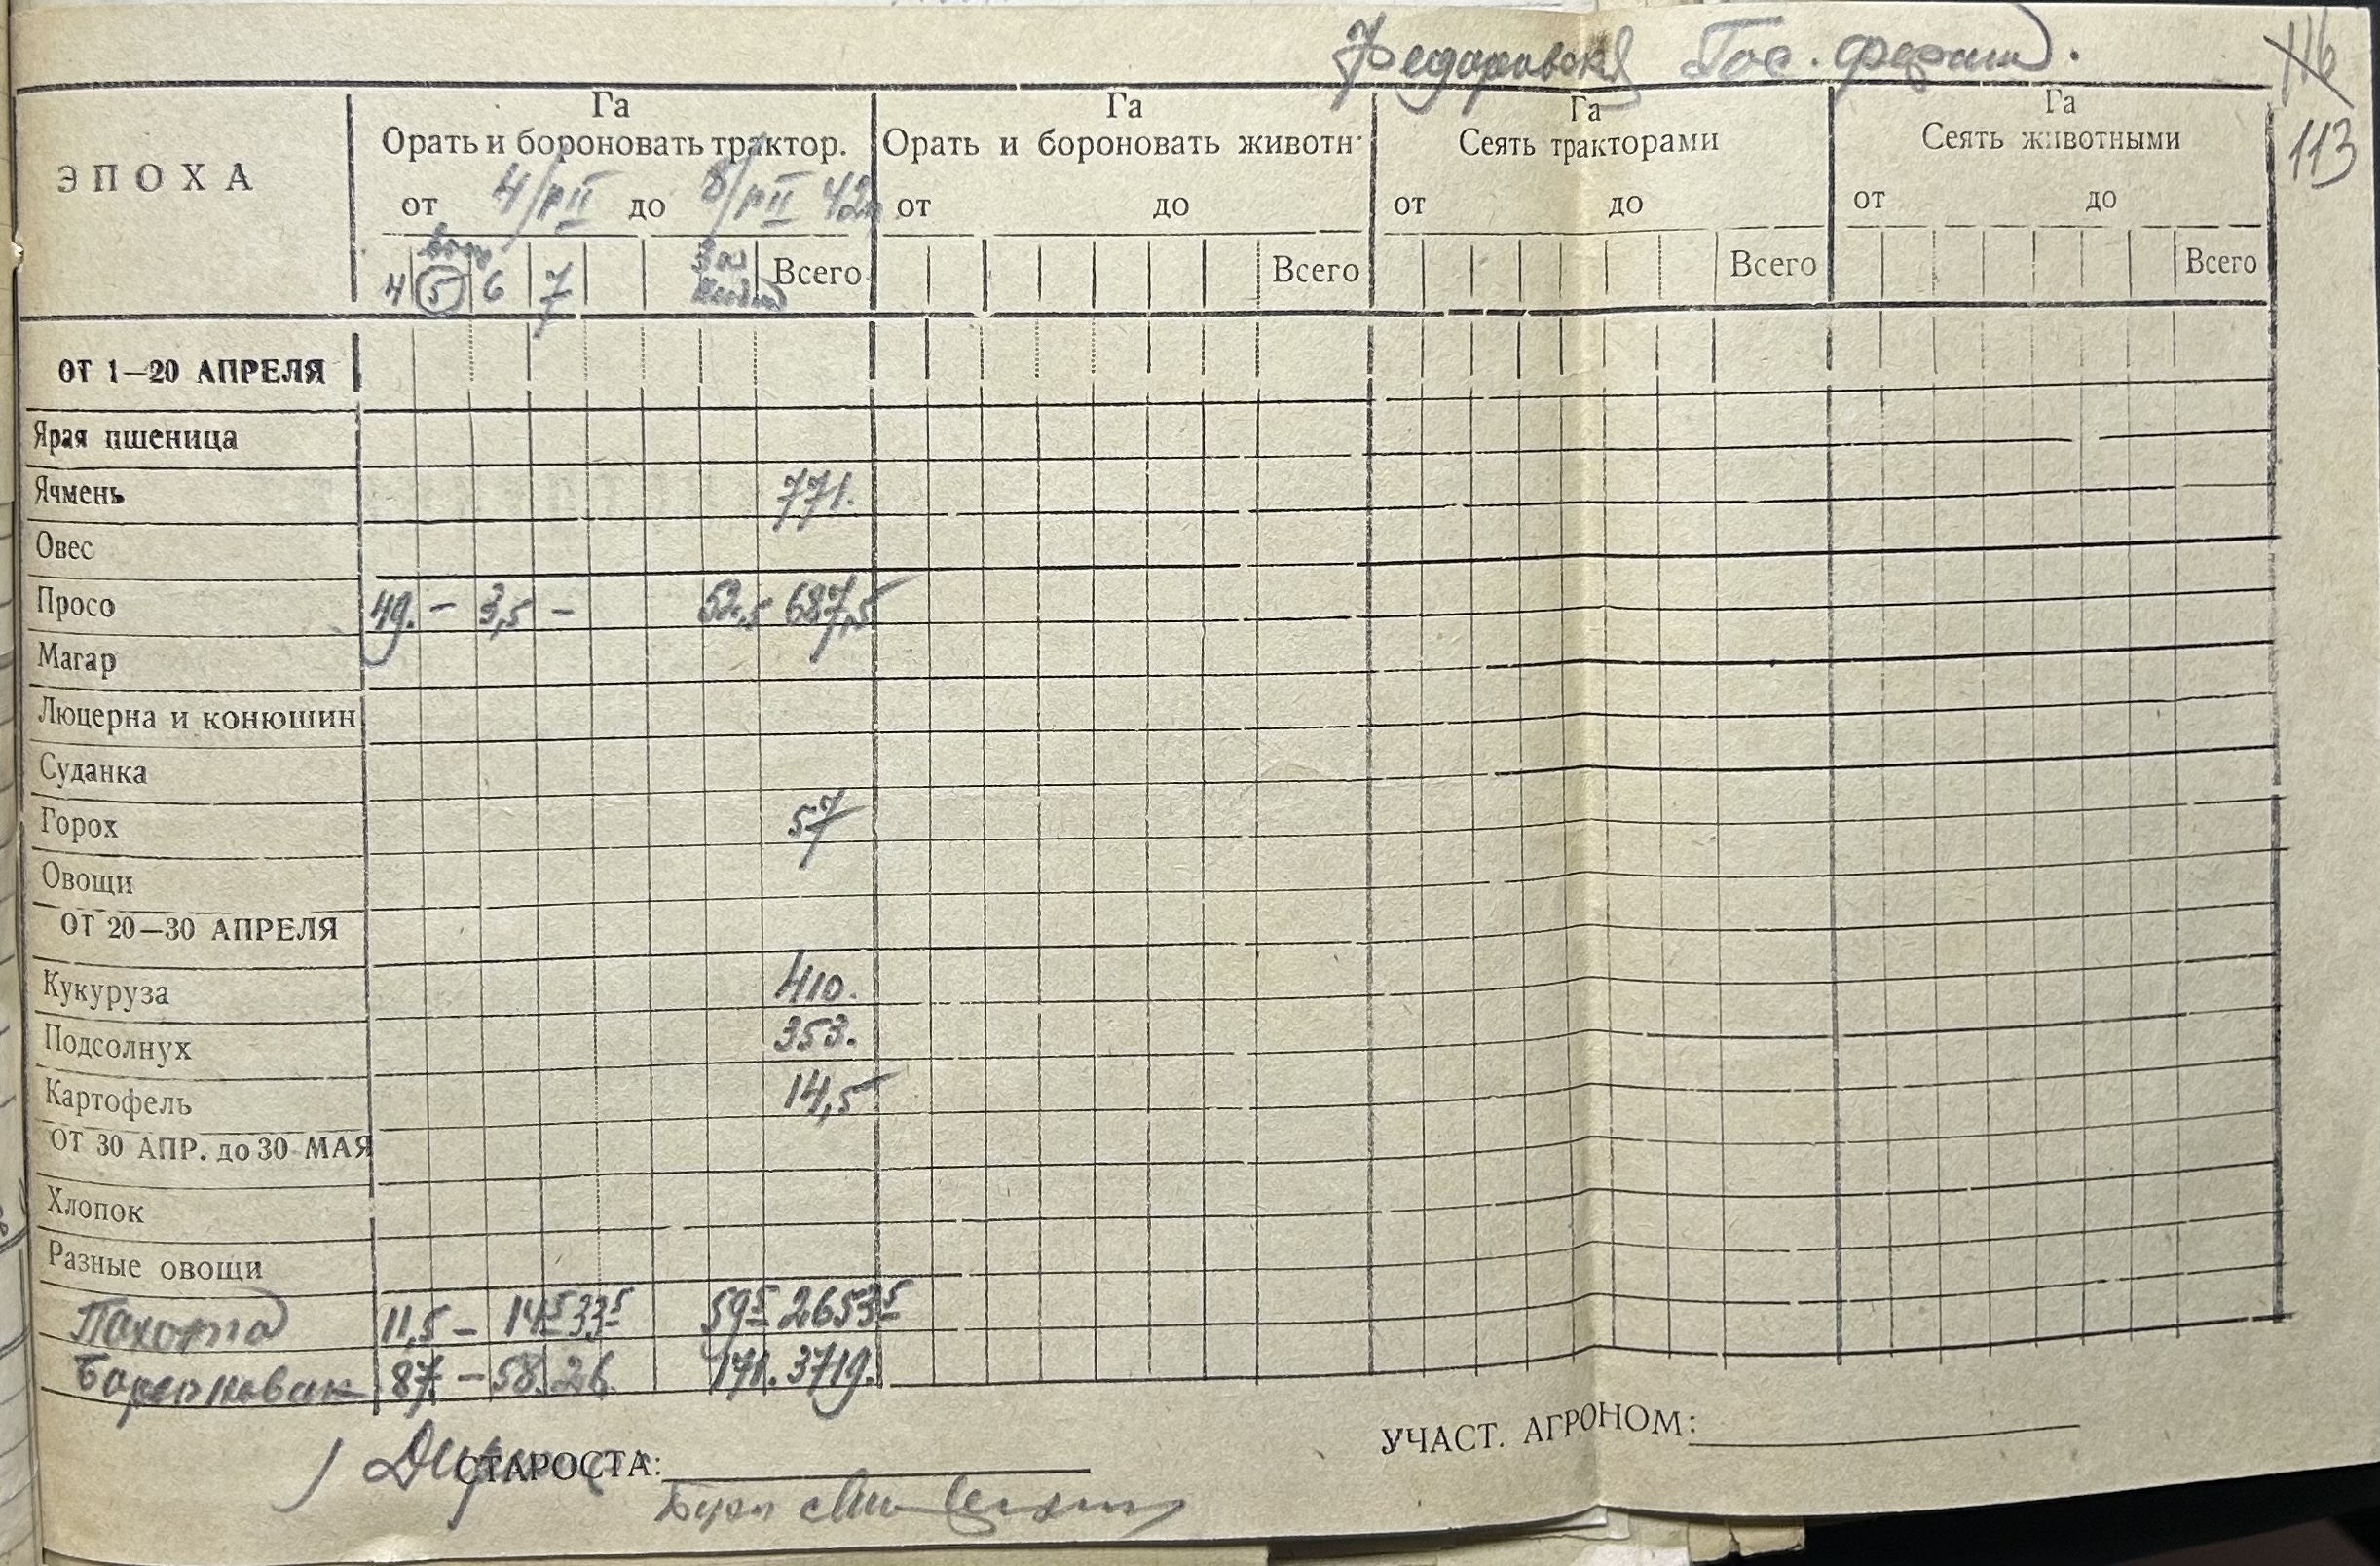 Федоровская Гос. ферма.
116
113
ЭПОХА
Га Га Га Га
Орать и бороновать трактор. Орать и бороновать животн. Сеять тракторами Сеять животными
от 4/VII до 8/VII 42 от до от до от до
4 5 6 7 За Всего Всего Всего Всего
ОТ 1—20 АПРЕЛЯ
Ярая пшеница
Ячмень 771.
Овес
Просо 49. – 3,5 – 52,5 687,5
Магар
Люцерна и конюшин
Суданка
Горох 57
Овощи
ОТ 20—30 АПРЕЛЯ
Кукуруза 410.
Подсолнух 353.
Картофель 14,5
ОТ 30 АПР. до 30 МАЯ
Хлопок
Разные овощи
Пахота 11,5 – 14⁵ 33⁵ 59⁵ 2653⁵
Боронован 87 – 58. 26. 171. 3719.
СТАРОСТА:
УЧАСТ. АГРОНОМ: